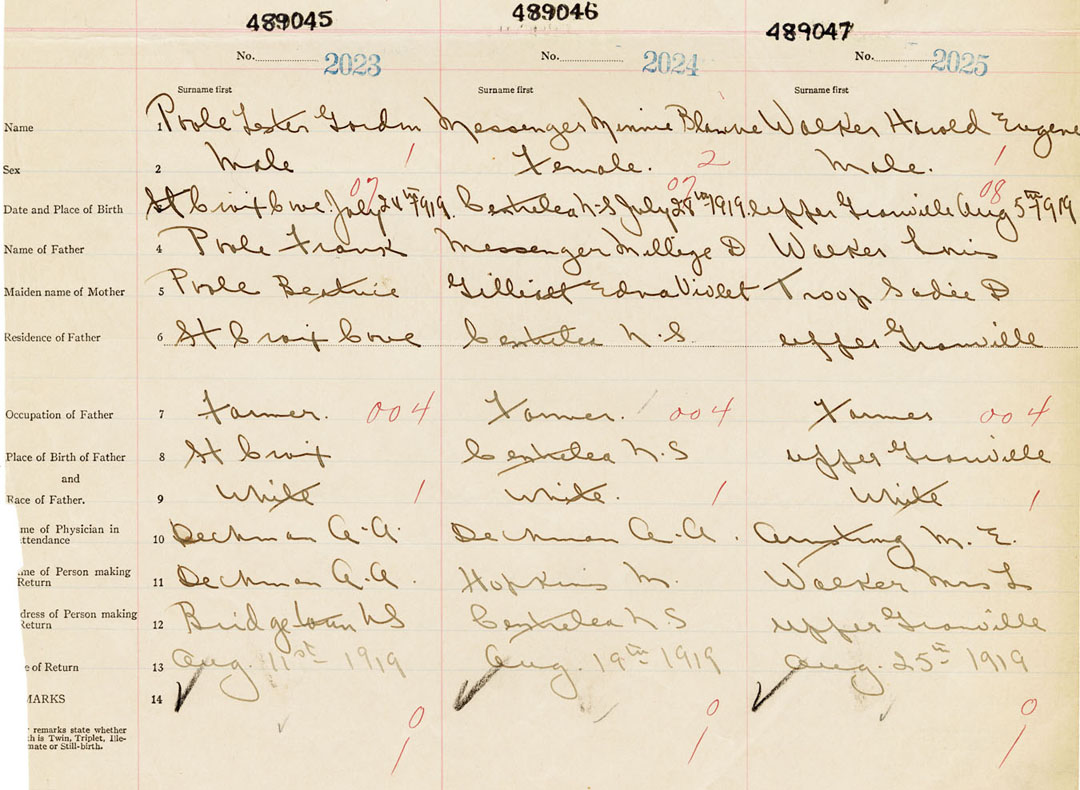 489045 489046 489047
No. 2023 No. 2024 No. 2025
Surname first Surname first Surname first
Name 1 Poole Lester Gordon Messenger Minnie Blanche Walker Harold Eugene
Sex 2 Male 1 Female. 2 Male. 1
07 07 08
Date and Place of Birth St Croix Cove. July 28th 1919. Centrelea N-S July 28th 1919. upper Granville Aug 5th 1919
Name of Father 4 Poole Frank Messenger D Walker Louis
Maiden name of Mother 5 Poole Beatrice Gilliatt Edna Violet Troop Sadie D
Residence of Father 6 St Croix Cove Centrelea N.S upper Granville
Occupation of Father 7 Farmer. 004 Farmer. 004 Farmer 004
Place of Birth of Father 8 St Croix Centrelea N.S upper Granville
and
Race of Father. 9 White 1 White. 1 White 1
me of Physician in
ttendance 10 Dechman A-A. Dechman A.A. Armstrong M. E.
me of Person making
Return 11 Dechman A.A. Hopkins M. Walker Mrs L
dress of Person making
Return 12 Bridgetown NS Centrelea N.S upper Granville
e of Return 13 Aug. 11st 1919 Aug. 19th 1919 Aug. 25th 1919
MARKS 14
0 0 0
remarks state whether
th is Twin, Triplet, Ille-
mate or Still-birth.
1 1 1